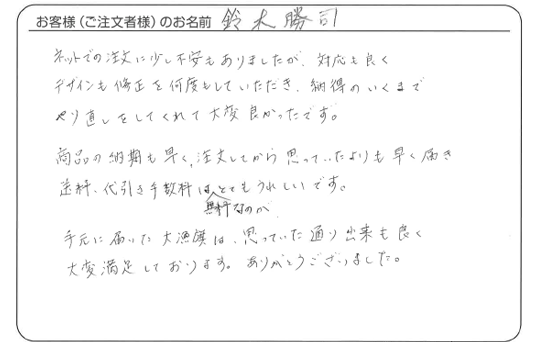 お客様（ご注文者様）のお名前 鈴木勝司
ネットでの注文に少し不安もありましたが、対応も良く
デザインも修正を何度もしていただき、納得のいくまで
やり直しをしてくれて大変良かったです。
商品の納期も早く、注文してから思っていたよりも早く届き
送料、代引き手数料は、とてもうれしいです。
無料なのが
手元に届いた大漁旗は、思っていた通り出来も良く
大変満足しております。ありがとうございました。